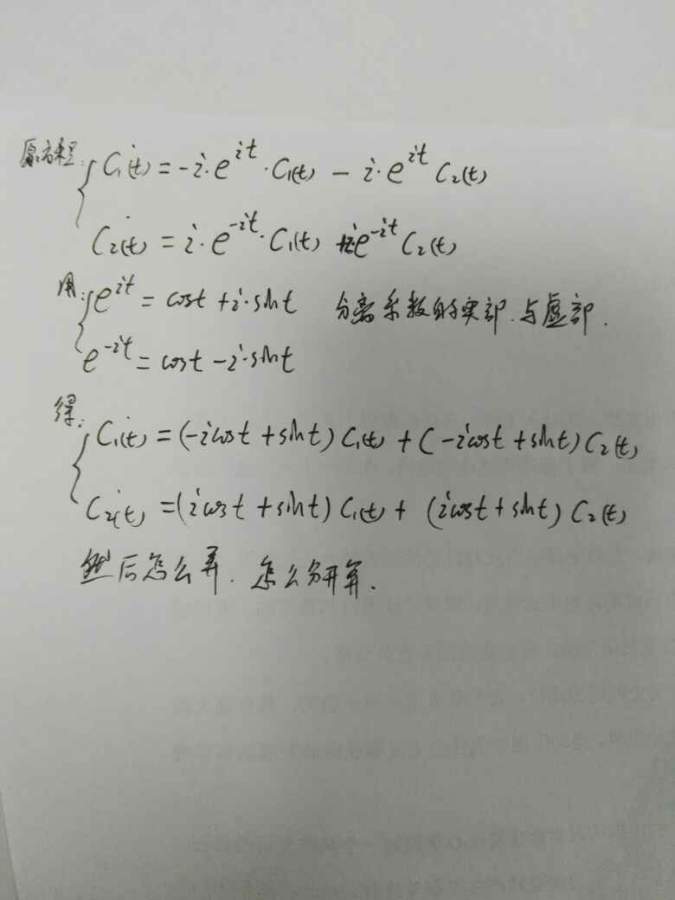 原方程: Ċ₁(t) = -i·e^{it}·C₁(t) - i·e^{it} C₂(t)
Ċ₂(t) = i·e^{-it}·C₁(t) + ie^{-it} C₂(t)
用: e^{it} = cost + i·sint 分离系数的实部与虚部.
e^{-it} = cost - i·sint
得: Ċ₁(t) = (-icost + sint) C₁(t) + (-icost + sint) C₂(t)
Ċ₂(t) = (icost + sint) C₁(t) + (icost + sint) C₂(t)
然后怎么弄. 怎么分开算.